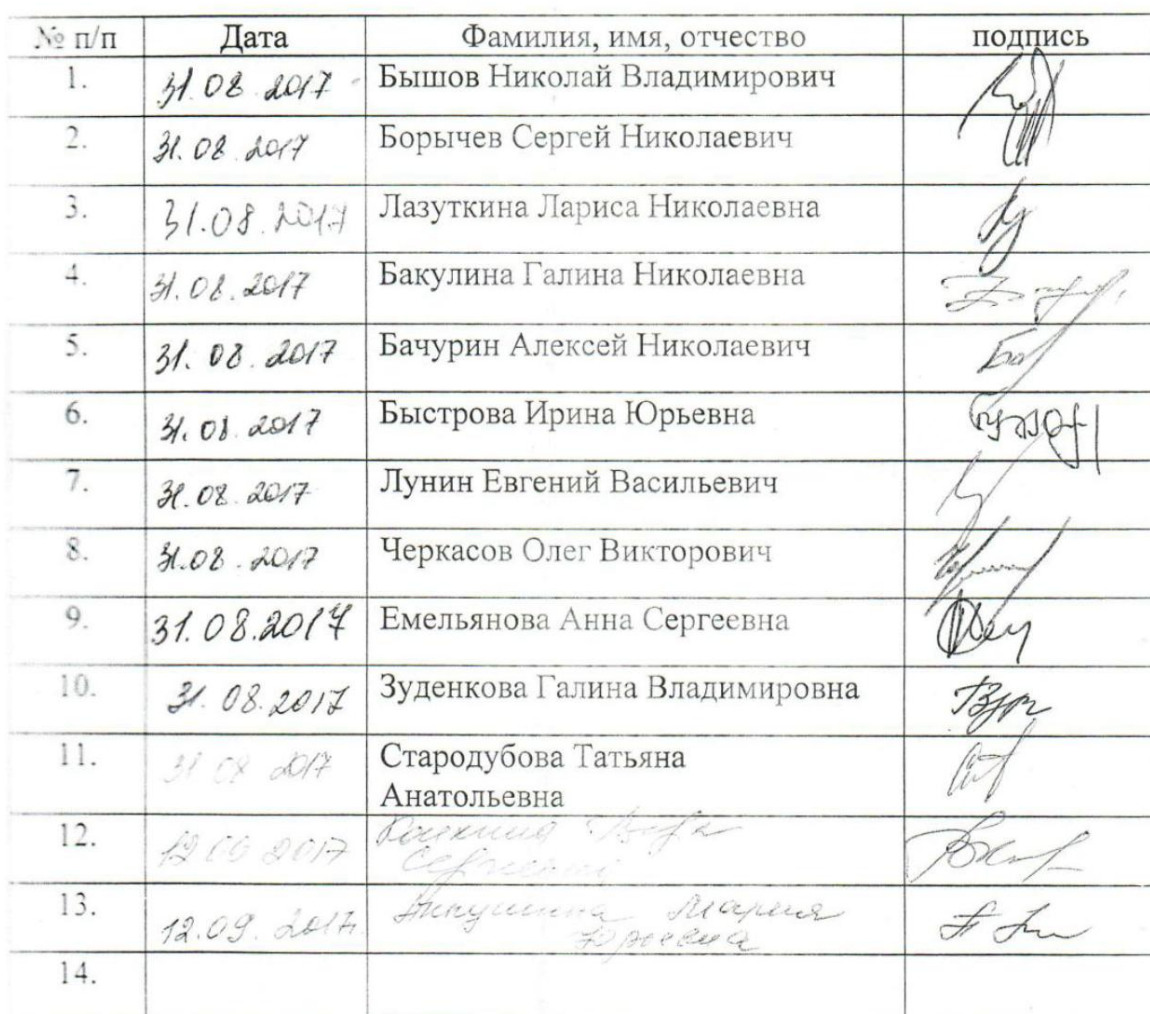 № п/п Дата Фамилия, имя, отчество подпись
1. 31.08.2017 Бышов Николай Владимирович
2. 31.08.2017 Борычев Сергей Николаевич
3. 31.08.2017 Лазуткина Лариса Николаевна
4. 31.08.2017 Бакулина Галина Николаевна
5. 31.08.2017 Бачурин Алексей Николаевич
6. 31.08.2017 Быстрова Ирина Юрьевна
7. 31.08.2017 Лунин Евгений Васильевич
8. 31.08.2017 Черкасов Олег Викторович
9. 31.08.2017 Емельянова Анна Сергеевна
10. 31.08.2017 Зуденкова Галина Владимировна
11. 31 08 2017 Стародубова Татьяна
Анатольевна
12. 12 09 2017
13. 12.09.2017 Мария
Юрьевна
14.